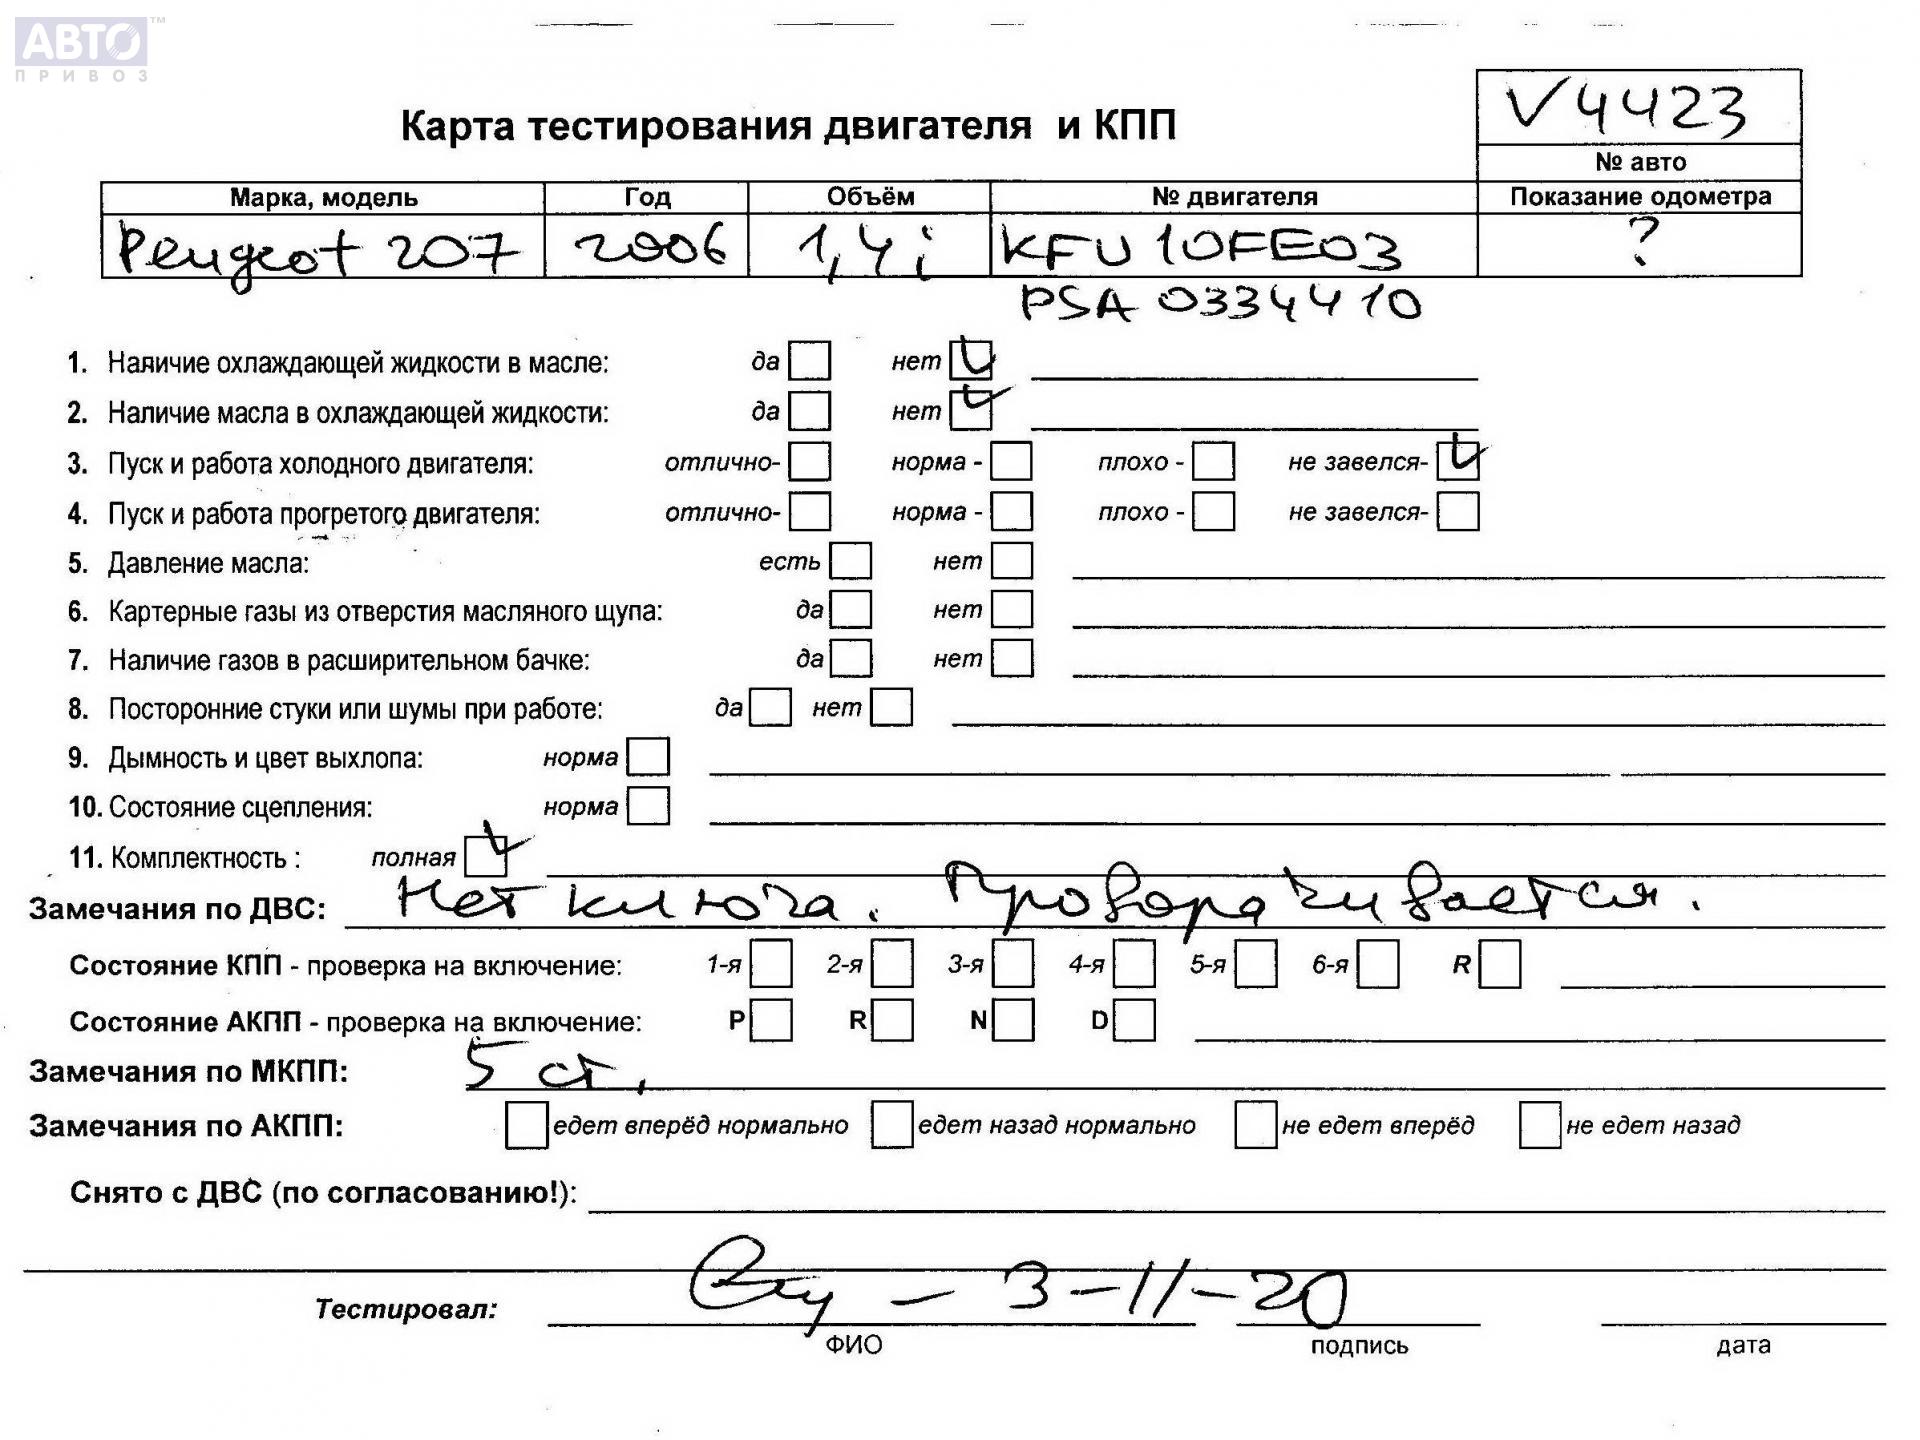 АВТО™
ПРИВОЗ
V4423
Карта тестирования двигателя и КПП
№ авто
Марка, модель Год Объём № двигателя Показание одометра
Peugeot 207 2006 1,4i KFU10FE03 ?
PSA 0334410
1. Наличие охлаждающей жидкости в масле: да нет
2. Наличие масла в охлаждающей жидкости: да нет
3. Пуск и работа холодного двигателя: отлично- норма - плохо - не завелся-
4. Пуск и работа прогретого двигателя: отлично- норма - плохо - не завелся-
5. Давление масла: есть нет
6. Картерные газы из отверстия масляного щупа: да нет
7. Наличие газов в расширительном бачке: да нет
8. Посторонние стуки или шумы при работе: да нет
9. Дымность и цвет выхлопа: норма
10. Состояние сцепления: норма
11. Комплектность : полная
Замечания по ДВС: Нет ключа. Проворачивается.
Состояние КПП - проверка на включение: 1-я 2-я 3-я 4-я 5-я 6-я R
Состояние АКПП - проверка на включение: P R N D
Замечания по МКПП: 5 ст.
Замечания по АКПП: едет вперёд нормально едет назад нормально не едет вперёд не едет назад
Снято с ДВС (по согласованию!):
Тестировал: - 3-11-20
ФИО подпись дата